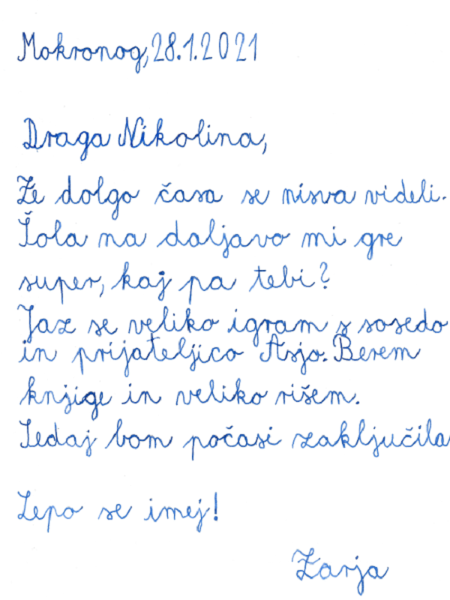 Mokronog, 28.1.2021
Draga Nikolina,
Že dolgo časa se nisva videli.
Šola na daljavo mi gre
super, kaj pa tebi?
Jaz se veliko igram z sosedo
in prijateljico Asjo. Berem
knjige in veliko rišem.
Sedaj bom počasi zaključila
Lepo se imej!
Zarja